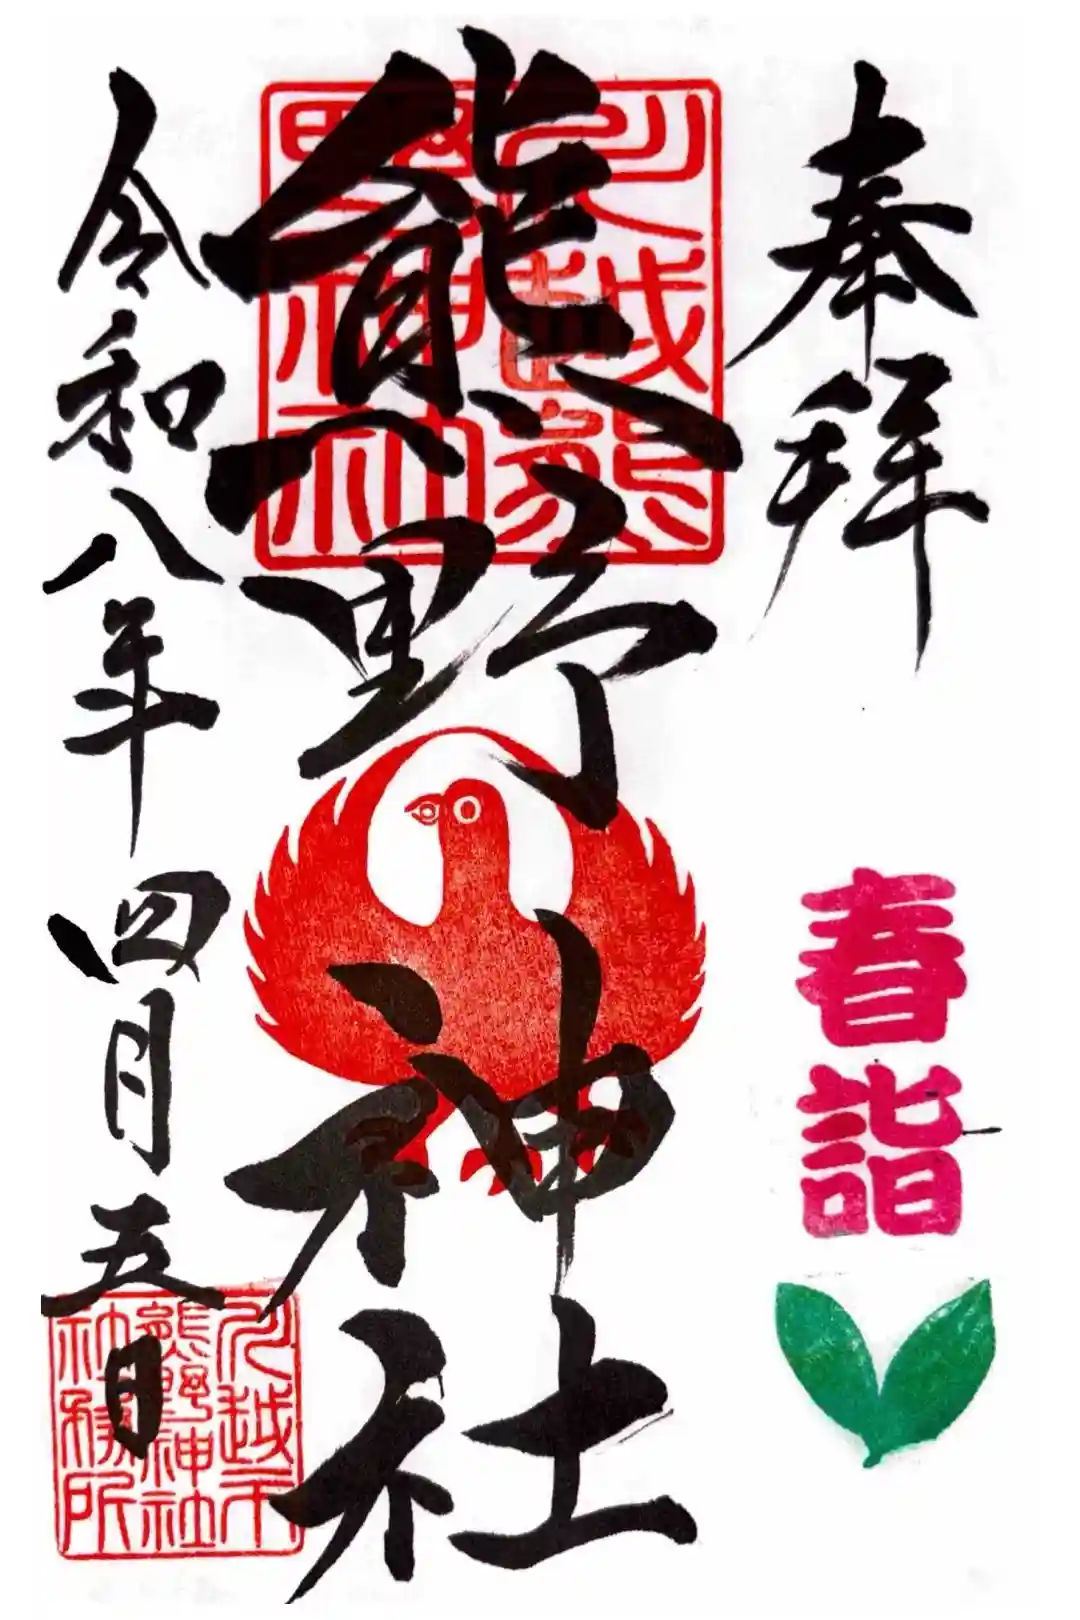 奉拝
春詣
川越熊
野神社
熊野神社
令和八年四月五日
川越市
熊野神社
社務所